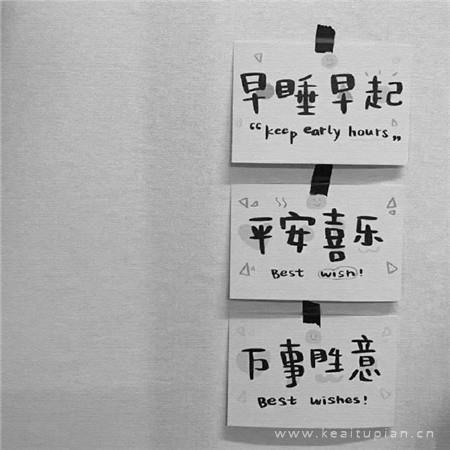 早睡早起
“keep early hours”
平安喜乐
Best wish!
万事胜意
Best wishes!
www.keaitupian.cn